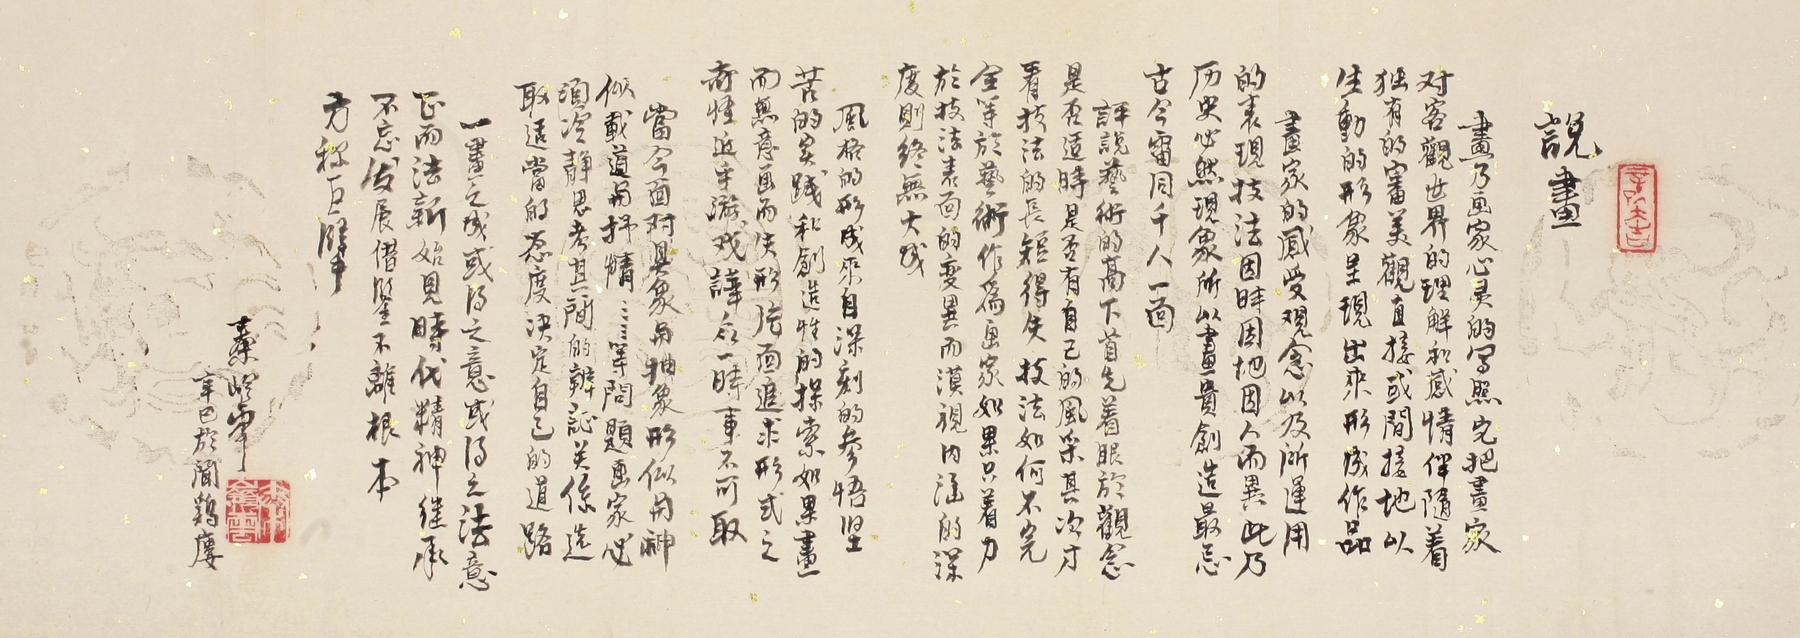 說畫
畫乃画家心灵的写照它把畫家
对客觀世界的理解和感情伴隨着
独有的審美觀直接或間接地以
生動的形象呈現出來形成作品
畫家的感受观念以及所運用
的表現技法因时因地因人而異此乃
历史必然現象所以畫貴創造最忌
古今雷同千人一面
評說藝術的高下首先着眼於觀念
是否適時是否有自己的風采其次才
看技法的長短得失技法如何不完
全等於藝術作為画家如果只着力
於技法表面的变異而漠視内涵的深
度則終無大成
風格的形成來自深刻的參悟坚
苦的実践和創造性的探索如果畫
而無意画而失形弦面追求形式之
奇怪近乎游戏譁众一時東不可取
當今面对具象与抽象形似与神
似載道与抒情……等問題画家必
須冷静思考其間的辩証关係选
取适當的态度决定自己的道路
一畫之成或得之意或得之法意
正而法新始見時代精神继承
不忘发展借鉴不離根本
方称巨擘
辛巳於聞鷄廔